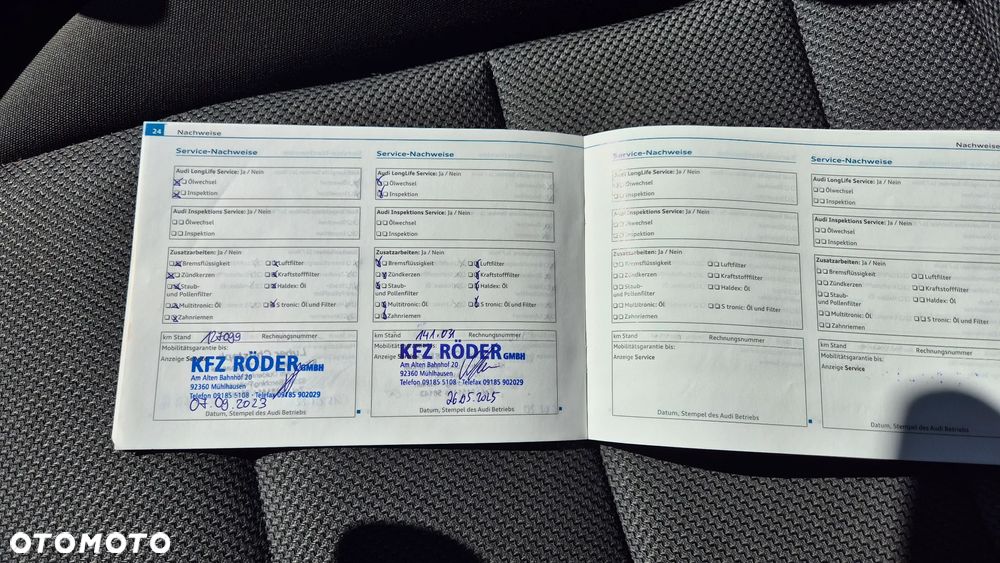 24 Nachweise
Service-Nachweise
Audi LongLife Service: Ja / Nein
Ölwechsel
Inspektion
Audi Inspektions Service: Ja / Nein
Ölwechsel
Inspektion
Zusatzarbeiten: Ja / Nein
Bremsflüssigkeit
Luftfilter
Zündkerzen
Kraftstofffilter
Staub- und Pollenfilter
Haldex: Öl
Multitronic: Öl
S tronic: Öl und Filter
Zahnriemen
km Stand 127099 Rechnungsnummer
Mobilitätsgarantie bis:
Anzeige Service
KFZ RÖDER GMBH
Am Alten Bahnhof 20
92360 Mühlhausen
Telefon 09185 5108 - Telefax 09185 902029
07.09.2023
Datum, Stempel des Audi Betriebs
Service-Nachweise
Audi LongLife Service: Ja / Nein
Ölwechsel
Inspektion
Audi Inspektions Service: Ja / Nein
Ölwechsel
Inspektion
Zusatzarbeiten: Ja / Nein
Bremsflüssigkeit
Luftfilter
Zündkerzen
Kraftstofffilter
Staub- und Pollenfilter
Haldex: Öl
Multitronic: Öl
S tronic: Öl und Filter
Zahnriemen
km Stand 141.031 Rechnungsnummer
Mobilitätsgarantie bis:
Anzeige Service
KFZ RÖDER GMBH
Am Alten Bahnhof 20
92360 Mühlhausen
Telefon 09185 5108 - Telefax 09185 902029
26.05.2025
Datum, Stempel des Audi Betriebs
Nachweise
Service-Nachweise
Audi LongLife Service: Ja / Nein
Ölwechsel
Inspektion
Audi Inspektions Service: Ja / Nein
Ölwechsel
Inspektion
Zusatzarbeiten: Ja / Nein
Bremsflüssigkeit
Luftfilter
Zündkerzen
Kraftstofffilter
Staub- und Pollenfilter
Haldex: Öl
Multitronic: Öl
S tronic: Öl und Filter
Zahnriemen
km Stand Rechnungsnummer
Mobilitätsgarantie bis:
Anzeige Service
Datum, Stempel des Audi Betriebs
Service-Nachweise
Audi LongLife Service: Ja / Nein
Ölwechsel
Inspektion
Audi Inspektions Service: Ja / Nein
Ölwechsel
Inspektion
Zusatzarbeiten: Ja / Nein
Bremsflüssigkeit
Luftfilter
Zündkerzen
Kraftstofffilter
Staub- und Pollenfilter
Haldex: Öl
Multitronic: Öl
S tronic: Öl und Filter
Zahnriemen
km Stand Rechnungsnummer
Mobilitätsgarantie bis:
Anzeige Service
Datum, Stempel des Audi Betriebs
OTOMOTO